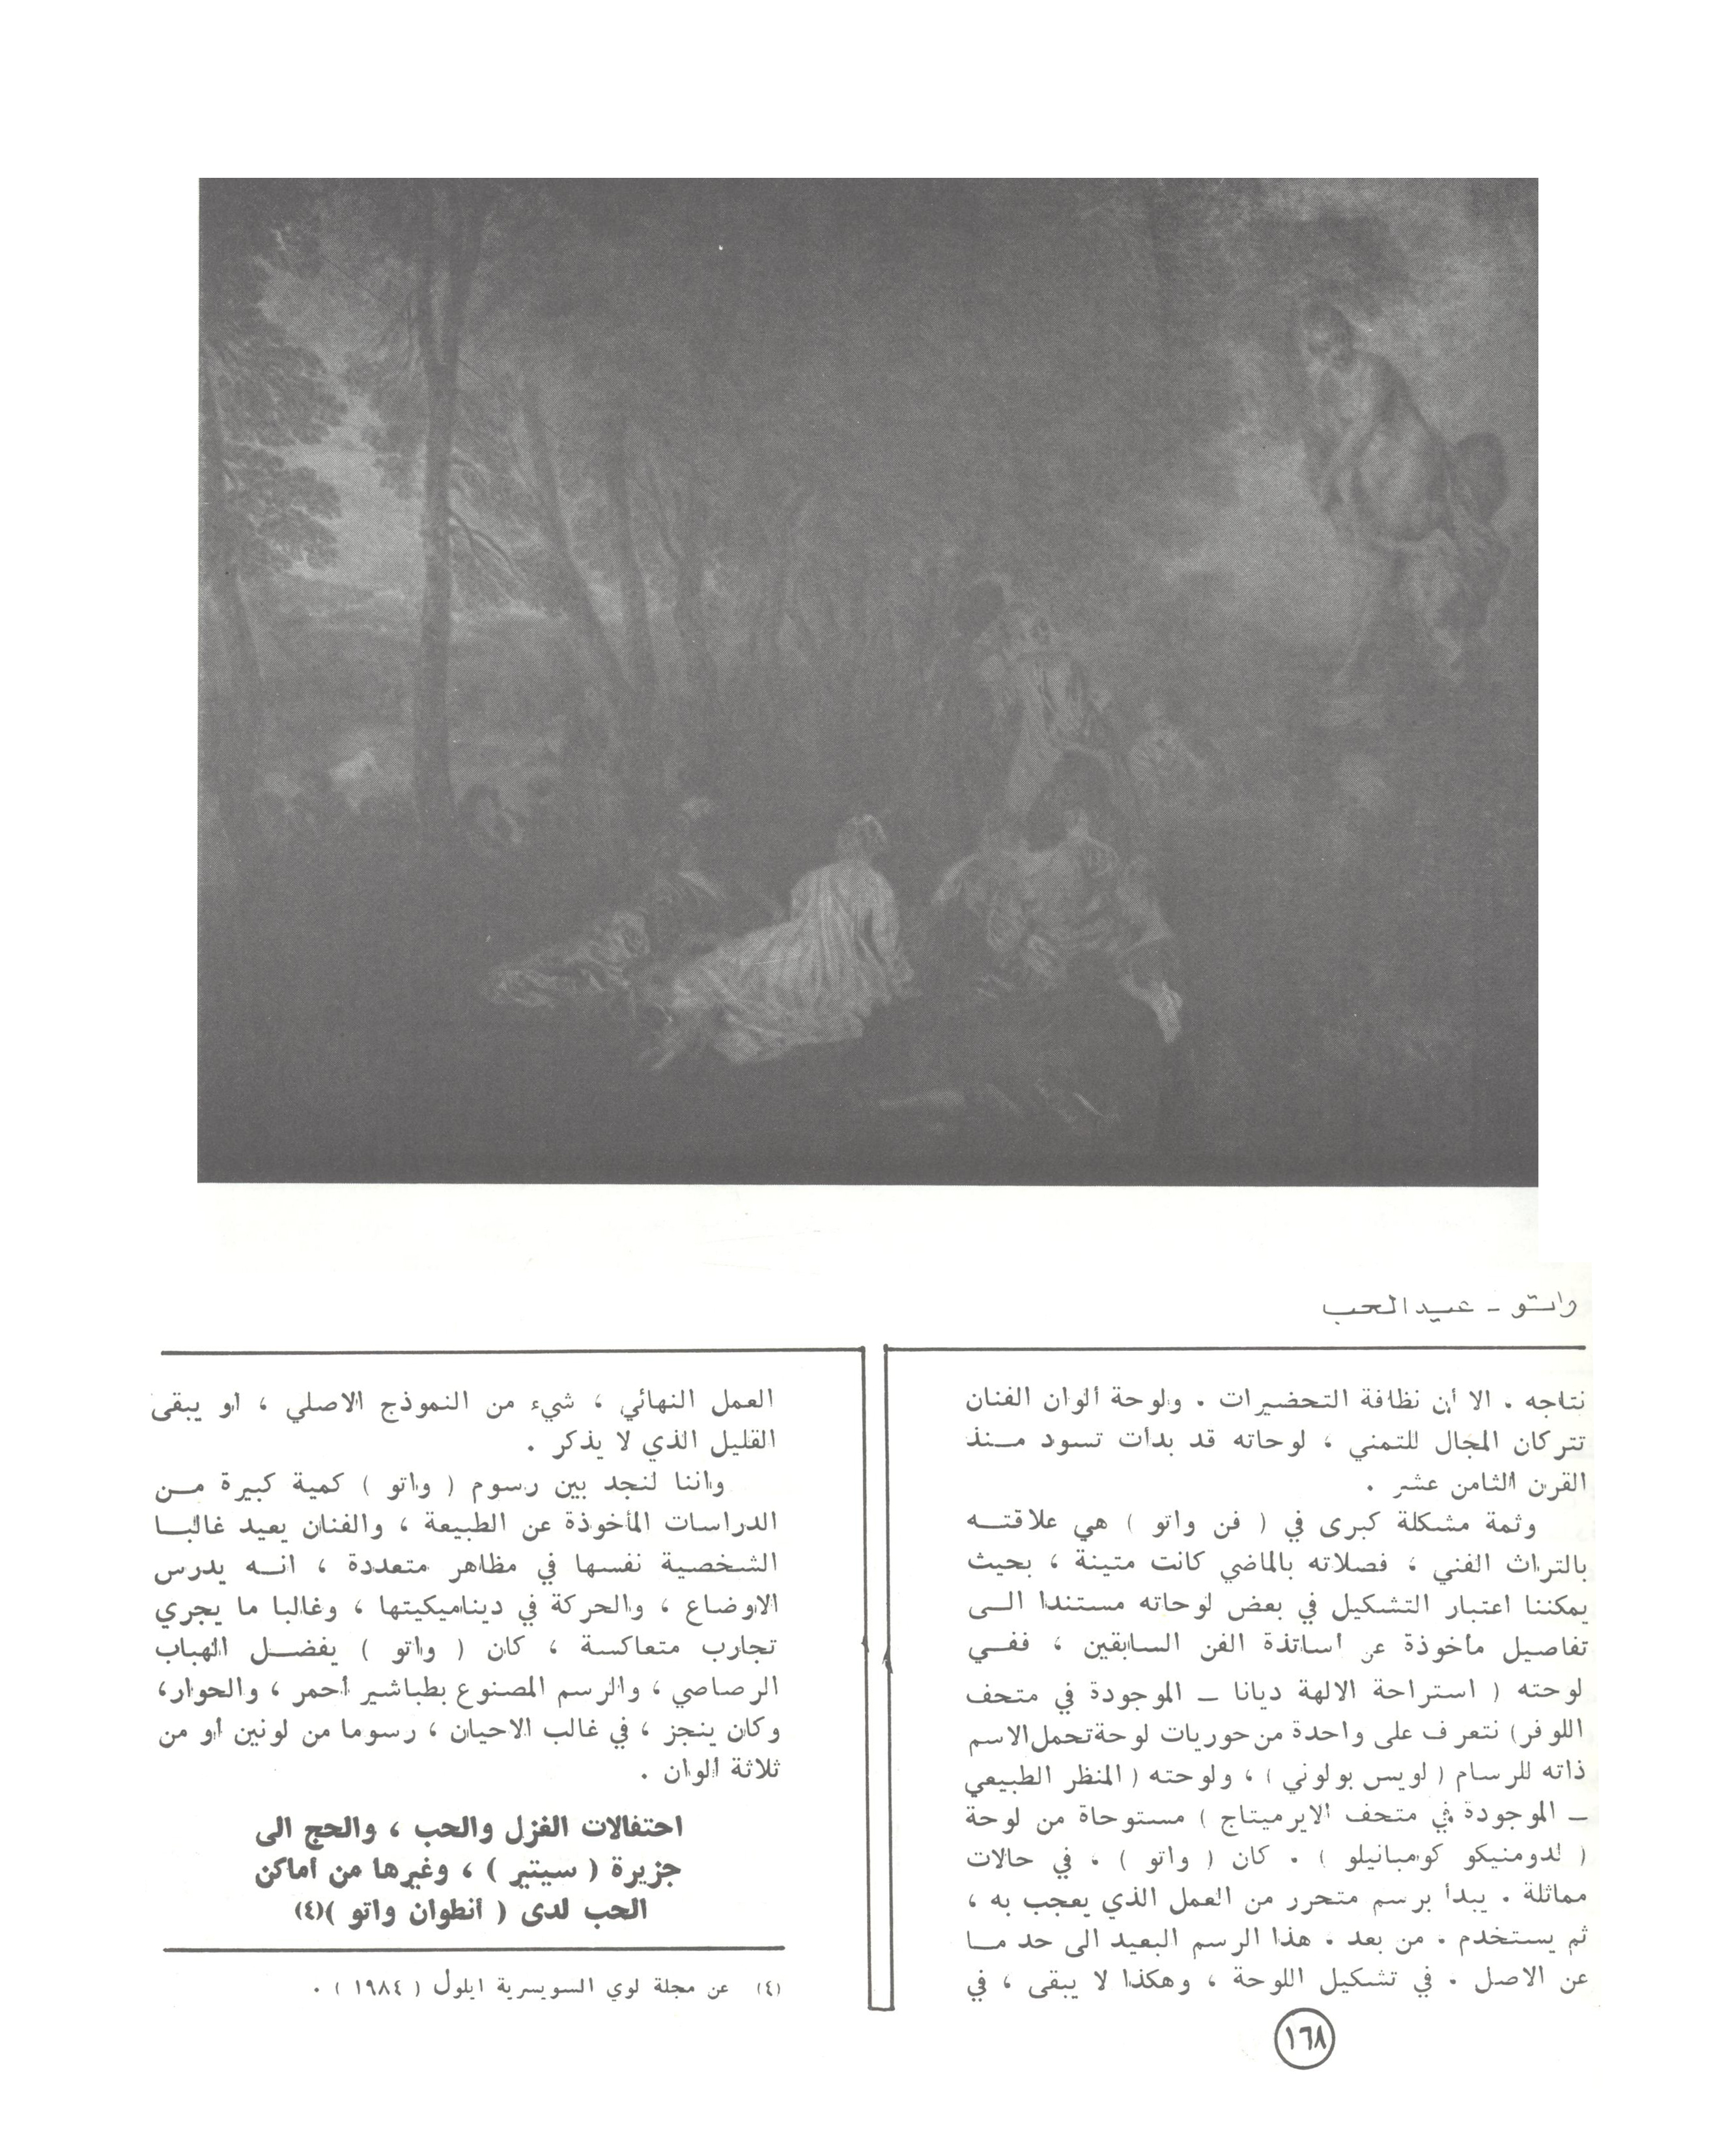 واتو - عيد الحب
نتاجه . الا أن نظافة التحضيرات . ولوحة ألوان الفنان
تتركان المجال للتمني ، لوحاته قد بدأت تسود منذ
القرن الثامن عشر .
وثمة مشكلة كبرى في ( فن واتو ) هي علاقته
بالتراث الفني ، فصلاته بالماضي كانت متينة ، بحيث
يمكننا اعتبار التشكيل في بعض لوحاته مستندا الى
تفاصيل مأخوذة عن أساتذة الفن السابقين ، ففي
لوحته ( استراحة الالهة ديانا – الموجودة في متحف
اللوفر) نتعرف على واحدة من حوريات لوحة تحمل الاسم
ذاته للرسام ( لويس بولوني ) ، ولوحته ( المنظر الطبيعي
– الموجودة في متحف الايرميتاج ) مستوحاة من لوحة
( لدومنيكو كومبانيلو ) . كان ( واتو ) . في حالات
مماثلة . يبدأ برسم متحرر من العمل الذي يعجب به ،
ثم يستخدم . من بعد . هذا الرسم البعيد الى حد ما
عن الاصل . في تشكيل اللوحة ، وهكذا لا يبقى ، في
العمل النهائي ، شيء من النموذج الاصلي ، او يبقى
القليل الذي لا يذكر .
واننا لنجد بين رسوم ( واتو ) كمية كبيرة من
الدراسات المأخوذة عن الطبيعة ، والفنان يعيد غالبا
الشخصية نفسها في مظاهر متعددة ، انه يدرس
الاوضاع ، والحركة في ديناميكيتها ، وغالبا ما يجري
تجارب متعاكسة ، كان ( واتو ) يفضل الهباب
الرصاصي ، والرسم المصنوع بطباشير أحمر ، والحوار،
وكان ينجز ، في غالب الاحيان ، رسوما من لونين أو من
ثلاثة ألوان .
احتفالات الغزل والحب ، والحج الى
جزيرة ( سيتير ) ، وغيرها من أماكن
الحب لدى ( أنطوان واتو )(٤)
(٤) عن مجلة لوي السويسرية ايلول ( ١٩٨٤ ) .
١٦٨